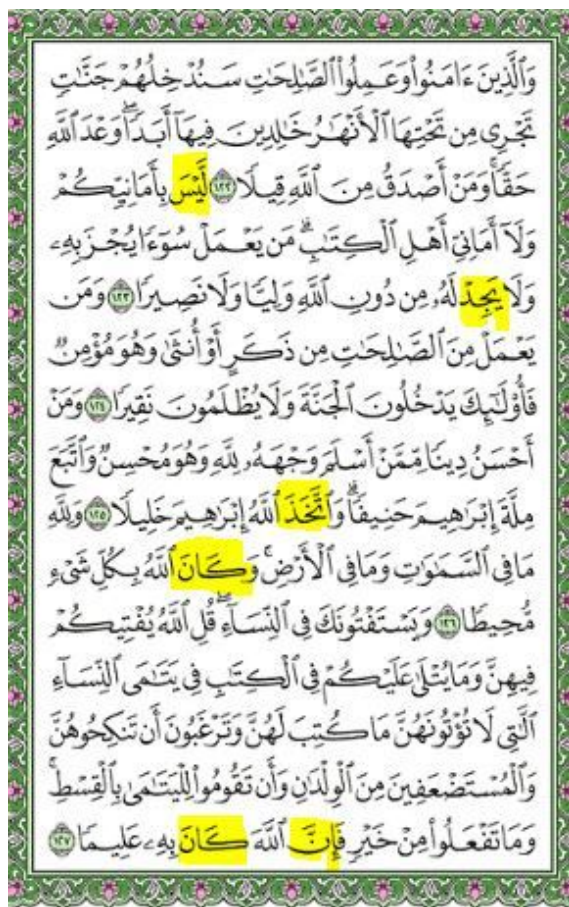 وَٱلَّذِينَ ءَامَنُوا۟ وَعَمِلُوا۟ ٱلصَّٰلِحَٰتِ سَنُدْخِلُهُمْ جَنَّٰتٍ
تَجْرِى مِن تَحْتِهَا ٱلْأَنْهَٰرُ خَٰلِدِينَ فِيهَآ أَبَدًا ۖ وَعْدَ ٱللَّهِ
حَقًّا ۚ وَمَنْ أَصْدَقُ مِنَ ٱللَّهِ قِيلًا ۝١٢٢ لَّيْسَ بِأَمَانِيِّكُمْ
وَلَآ أَمَانِىِّ أَهْلِ ٱلْكِتَٰبِ ۗ مَن يَعْمَلْ سُوٓءًا يُجْزَ بِهِۦ
وَلَا يَجِدْ لَهُۥ مِن دُونِ ٱللَّهِ وَلِيًّا وَلَا نَصِيرًا ۝١٢٣ وَمَن
يَعْمَلْ مِنَ ٱلصَّٰلِحَٰتِ مِن ذَكَرٍ أَوْ أُنثَىٰ وَهُوَ مُؤْمِنٌ
فَأُو۟لَٰٓئِكَ يَدْخُلُونَ ٱلْجَنَّةَ وَلَا يُظْلَمُونَ نَقِيرًا ۝١٢٤ وَمَنْ
أَحْسَنُ دِينًا مِّمَّنْ أَسْلَمَ وَجْهَهُۥ لِلَّهِ وَهُوَ مُحْسِنٌ وَٱتَّبَعَ
مِلَّةَ إِبْرَٰهِيمَ حَنِيفًا ۗ وَٱتَّخَذَ ٱللَّهُ إِبْرَٰهِيمَ خَلِيلًا ۝١٢٥ وَلِلَّهِ
مَا فِى ٱلسَّمَٰوَٰتِ وَمَا فِى ٱلْأَرْضِ ۚ وَكَانَ ٱللَّهُ بِكُلِّ شَىْءٍ
مُّحِيطًا ۝١٢٦ وَيَسْتَفْتُونَكَ فِى ٱلنِّسَآءِ ۖ قُلِ ٱللَّهُ يُفْتِيكُمْ
فِيهِنَّ وَمَا يُتْلَىٰ عَلَيْكُمْ فِى ٱلْكِتَٰبِ فِى يَتَٰمَى ٱلنِّسَآءِ
ٱلَّٰتِى لَا تُؤْتُونَهُنَّ مَا كُتِبَ لَهُنَّ وَتَرْغَبُونَ أَن تَنكِحُوهُنَّ
وَٱلْمُسْتَضْعَفِينَ مِنَ ٱلْوِلْدَٰنِ وَأَن تَقُومُوا۟ لِلْيَتَٰمَىٰ بِٱلْقِسْطِ ۚ
وَمَا تَفْعَلُوا۟ مِنْ خَيْرٍ فَإِنَّ ٱللَّهَ كَانَ بِهِۦ عَلِيمًا ۝١٢٧